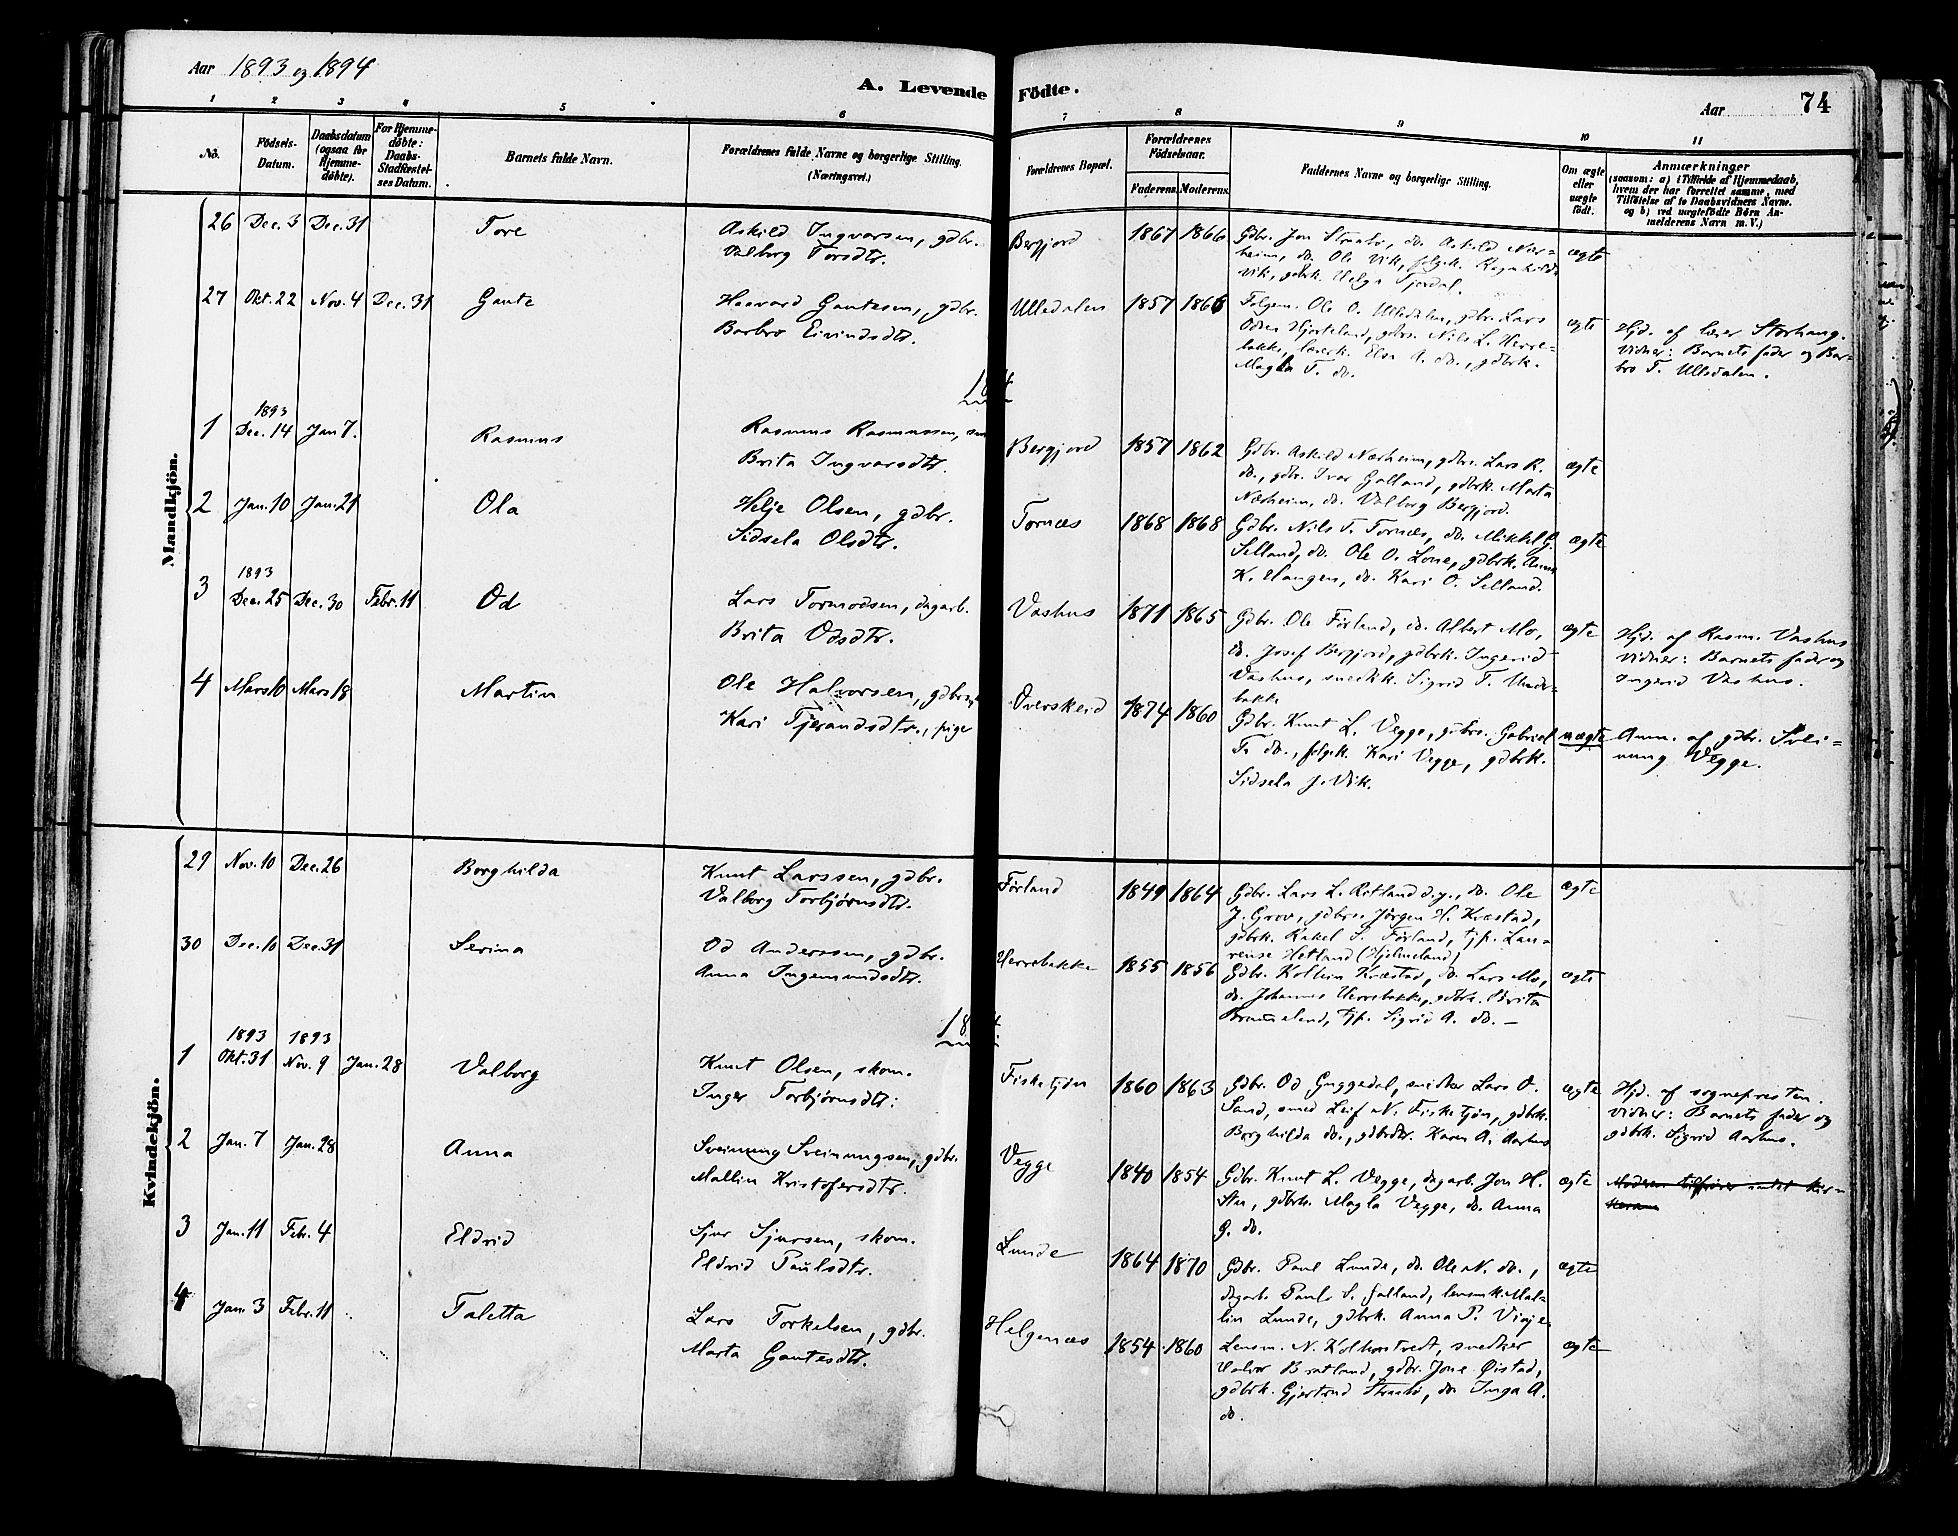 Aar 1893 og 1894
A. Levende Födte.
Aar 74
1 2 3 4 5 6 7 8 9 10 11
No.
Födsels-Datum.
Daabsdatum (ogsaa for Hjemme-döbte).
For Hjemme-döbte: Daabs-Stadfæstel-ses Datum.
Barnets fulde Navn.
Forældrenes fulde Navne og borgerlige Stilling. (Næringsvei.)
Forældrenes Bopæl.
Forældrenes Födselsaar.
Faderens. Moderens.
Faddernes Navne og borgerlige Stilling.
Om ægte eller uægte født.
Anmærkninger
(saasom: a) i Tilfælde af Hjemmedaab, hvem der har forrettet samme, med Tilföielse af to Daabsvidners Navne. og b) ved uægtefødte Börn An-melderens Navn m.V.)
Mandkjön.
26 Dec. 3 Dec. 31 Tore
Askild Ingvarsen, gdbr.
Valborg Toresdtr.
Bergjord 1867 1866
Gdbr. Jon Straabø, do. Askild Nær-
heim, do. Ole Vik, Ragnhilda
Vik, gdbrk. Helga Tjerdal.
ægte
27 Okt. 22 Nov. 4 Dec. 31 Gaute
Haavard Gautesen, gdbr.
Barbro Eivindsdtr.
Ullsdalen 1857 1866
Ole O. Ullsdalen, gdbr. Lars
Odsen Hjorteland, gdbrs. Nils L. Herre-
bakke, lærerk. Elsa A. do., gdbrk.
Magla T. do.
ægte
Hjd. af lærer Storhaug.
Vidner: Barnets fader og Bar-
bro T. Ullsdalen.
1894
1 1893 Dec. 14 Jan 7. Rasmus
Rasmus Rasmussen,
Brita Ingvarsdtr.
Bergjord 1857 1862
Gdbr. Askild Nærheim, gdbr. Lars R.
do., gdbr. Ivar Galland, gdbrk. Marta
Nærheim, do. Valborg Bergjord.
ægte
2 Jan. 10 Jan. 21 Ola
Helje Olsen, gdbr.
Sidsela Olsdtr.
Tornæs 1868 1868
Gdbr. Nils T. Tornæs, do. Mikkel G.
Selland, do. Ole O. Lone, gdbrk. Anna
K. Haugen, do. Kari O. Selland.
ægte
3 1893 Dec. 25 Dec. 30 Febr. 11 Od
Lars Tormodsen, dagarb.
Brita Odsdtr.
Vashus 1871 1865
Gdbr. Ole Førland, do. Albert Mo,
do. Josef Bergjord, gdbrk. Ingerid
Vashus, snedkk. Sigrid T. Under-
bakke
ægte
Hjd. af Rasm. Vashus
Vidner: Barnets fader og
Ingerid Vashus.
4 Mars 10 Mars 18 Martin
Ole Halvorsen,
Kari Tjerandsdtr., pige
Overskeid 1874 1860
Gdbr. Knut L. Vegge, gdbrs. Gabriel
T. do., Kari Vegge, gdbrk.
Sidsela J. Vik.
uægte
Anm. af gdbr. Svei-
nung Vegge.
Kvindekjön.
29 Nov. 10 Dec. 26 Borghilda
Knut Larssen, gdbr.
Valborg Torbjørnsdtr.
Førland 1849 1864
Gdbr. Lars L. Ritland d.y., do. Ole
J. Grov, gdbrs. Jørgen H. Kvæstad,
gdbrk. Rakel S. Førland, tjp. Lau-
rense Hetland (Hjelmeland)
ægte
30 Dec. 10 Dec. 31 Serina
Od Anderssen, gdbr.
Anna Ingemundsdtr.
Herrebakke 1855 1856
Gdbr. Kolbein Kvæstad, do. Lars Mo,
do. Johannes Herrebakke, gdbrk. Brita
Brommeland, tjp. Sigrid A. do. –
ægte
1894
1 1893 Okt. 31 1893 Nov. 9 Jan. 28 Valborg
Knut Olsen, skom.
Inger Torbjørnsdtr.
Fisketjøn 1860 1863
Gdbr. Od Guggedal, snedker Lars O.
Sand, smed Leif N. Fisketjøn, gdbrk.
Borghilda do., gdbrdtr. Karen A. Aarhus
ægte
Hjd. af sognepresten.
Vidner: Barnets fader og
gdbrk. Sigrid Aarhus.
2 Jan. 7 Jan. 28 Anna
Sveinung Sveinungsen, gdbr.
Mallin Kristofersdtr.
Vegge 1840 1854
Gdbr. Knut L. Vegge, dagarb. Jon H.
gdbrk. Magla Vegge, do. Anna
G. do.
ægte
3 Jan. 11 Febr. 4 Eldrid
Sjur Sjursen, skom.
Eldrid Paulsdtr.
Lunde 1864 1870
Gdbr. Paul Lunde, do. Ole N. do.,
dagarb. Paul S. Galland, lensmk. Mal-
lin Lunde, gdbrk. Anna P.
ægte
4 Jan. 3 Febr. 11 Taletta
Lars Torkelsen, gdbr.
Marta Gautesdtr.
Helgenæs 1854 1860
Lensm. N. Kolkonstvedt, snedker
Halvor Bratland, gdbr. Jone Øistad,
gdbrk. Gjertrud Straabø, do. Inga A.
do.
ægte